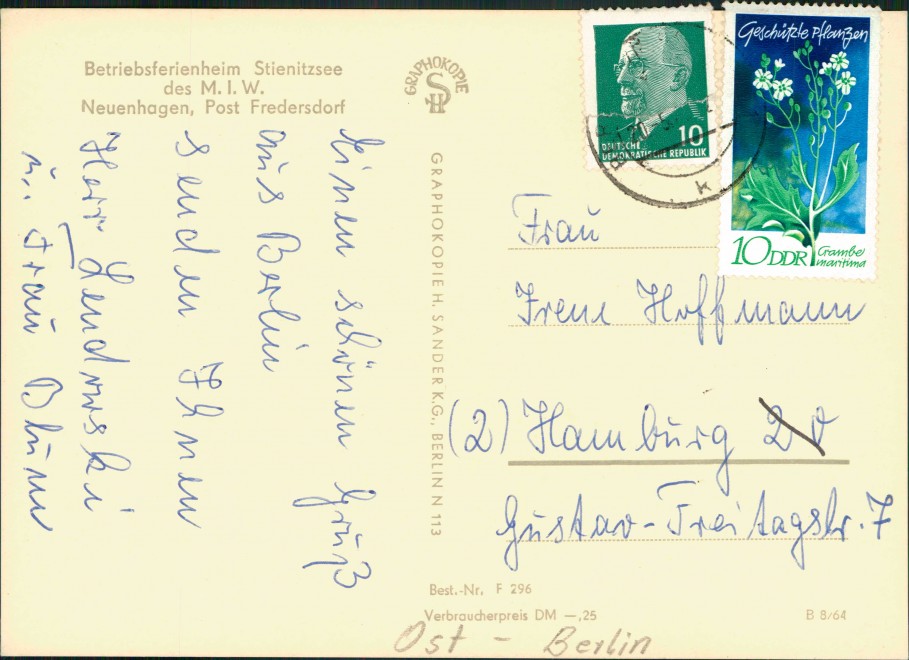 Betriebsferienheim Stienitzsee
des M. I. W.
Neuenhagen, Post Fredersdorf
GRAPHOKOPIE
HS
Einen schönen Gruß
aus Berlin
senden Ihnen
Herr Lendowski
u. Frau Blum
GRAPHOKOPIE H. SANDER K.G., BERLIN N 113
10
DEUTSCHE
DEMOKRATISCHE REPUBLIK
Geschützte Pflanzen
10 DDR Crambe
maritima
Frau
Irene Hoffmann
(2) Hamburg
Gustav-Freitagstr. 7
Best.-Nr. F 296
Verbraucherpreis DM —,25
B 8/64
Ost - Berlin